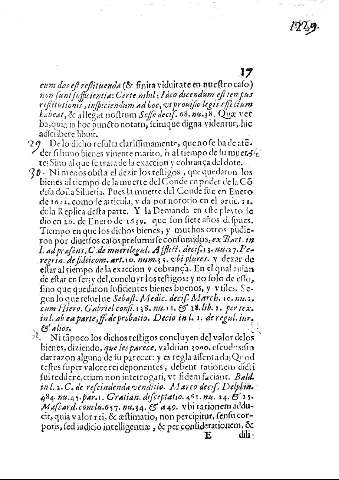 17
cum dos est restituenda (& finita viduitate en nuestro caso)
non sunt sufficientia: Certe nihil; Ideo dicendum est tempus
restitutionis, inspiciendum ad hoc, vt prouisio legis effectum
habeat, & allegat nostrum Sesse decis. 68. nu. 38. Quæ ver
ba, quia in hoc puncto notatu, scituque digna videntur, hic
adscribere libuit.
29 De lo dicho resulta clarissimamente, que no se ha de atē-
der si huuo bienes vinente marito, ò al tiempo de su muer-
te: Sino al que se trata de la exaccion y cobrança del dote.
30 Ni menos obsta el dezir los testigos, que quedaron los
bienes al tiempo de la muerte del Conde en poder de la Cō
desa doña Silueria. Pues la muerte del Conde fue en Enero
de como se articula, y da por notorio en el artic. 21.
de la Replica desta parte. Y la Demanda en este pleyto se
dio en 20. de Enero de 1619. que son siete años despues.
Tiempo en que los dichos bienes, y muchos otros pudie-
ron por diuersos casos presumirse consumidos, ex Bart. in
estar al tiempo de la exaccion y cobrança. En el qual auian
de estar en ser, y del, concluyr los testigos: y no solo de esto,
sino que quedaron suficientes bienes buenos, y vtiles. Se-
gun lo que resuelue Sebast. Medic. decis. March. 10. nu. 2.
cum Hiero. Gabriel cons. 138. nu. & 28. lib. 2. per tex.
iul. ab ea parte, ff. de probatio. Decio in l. 1. de regul. iur.
& alios.
Ni tāpoco los dichos testigos concluyen del valor de los
bienes, diziendo, que les parece, valdrian 3000. escudos: sin
dar razon alguna de su parecer: y es regla assentada; Quod
testes super valore rei deponentes, debent rationem dicti
sui reddere, etiam non interrogati, vt fidem faciant. Bald.
in l. 2. C. de rescindenda venditio. Marco decis. Delphin.
484. nu. 45. par. 1. Gratian. disceptatio. 461. nu. 24. & 25.
Mascard. conclu. 637. nu. 34. & 49. vbi rationem addu-
cit, quia valor rei, & æstimatio, non percipitur, sensu cor-
poris, sed iudicio intelligentiæ, & per considerationem, &
E dili-